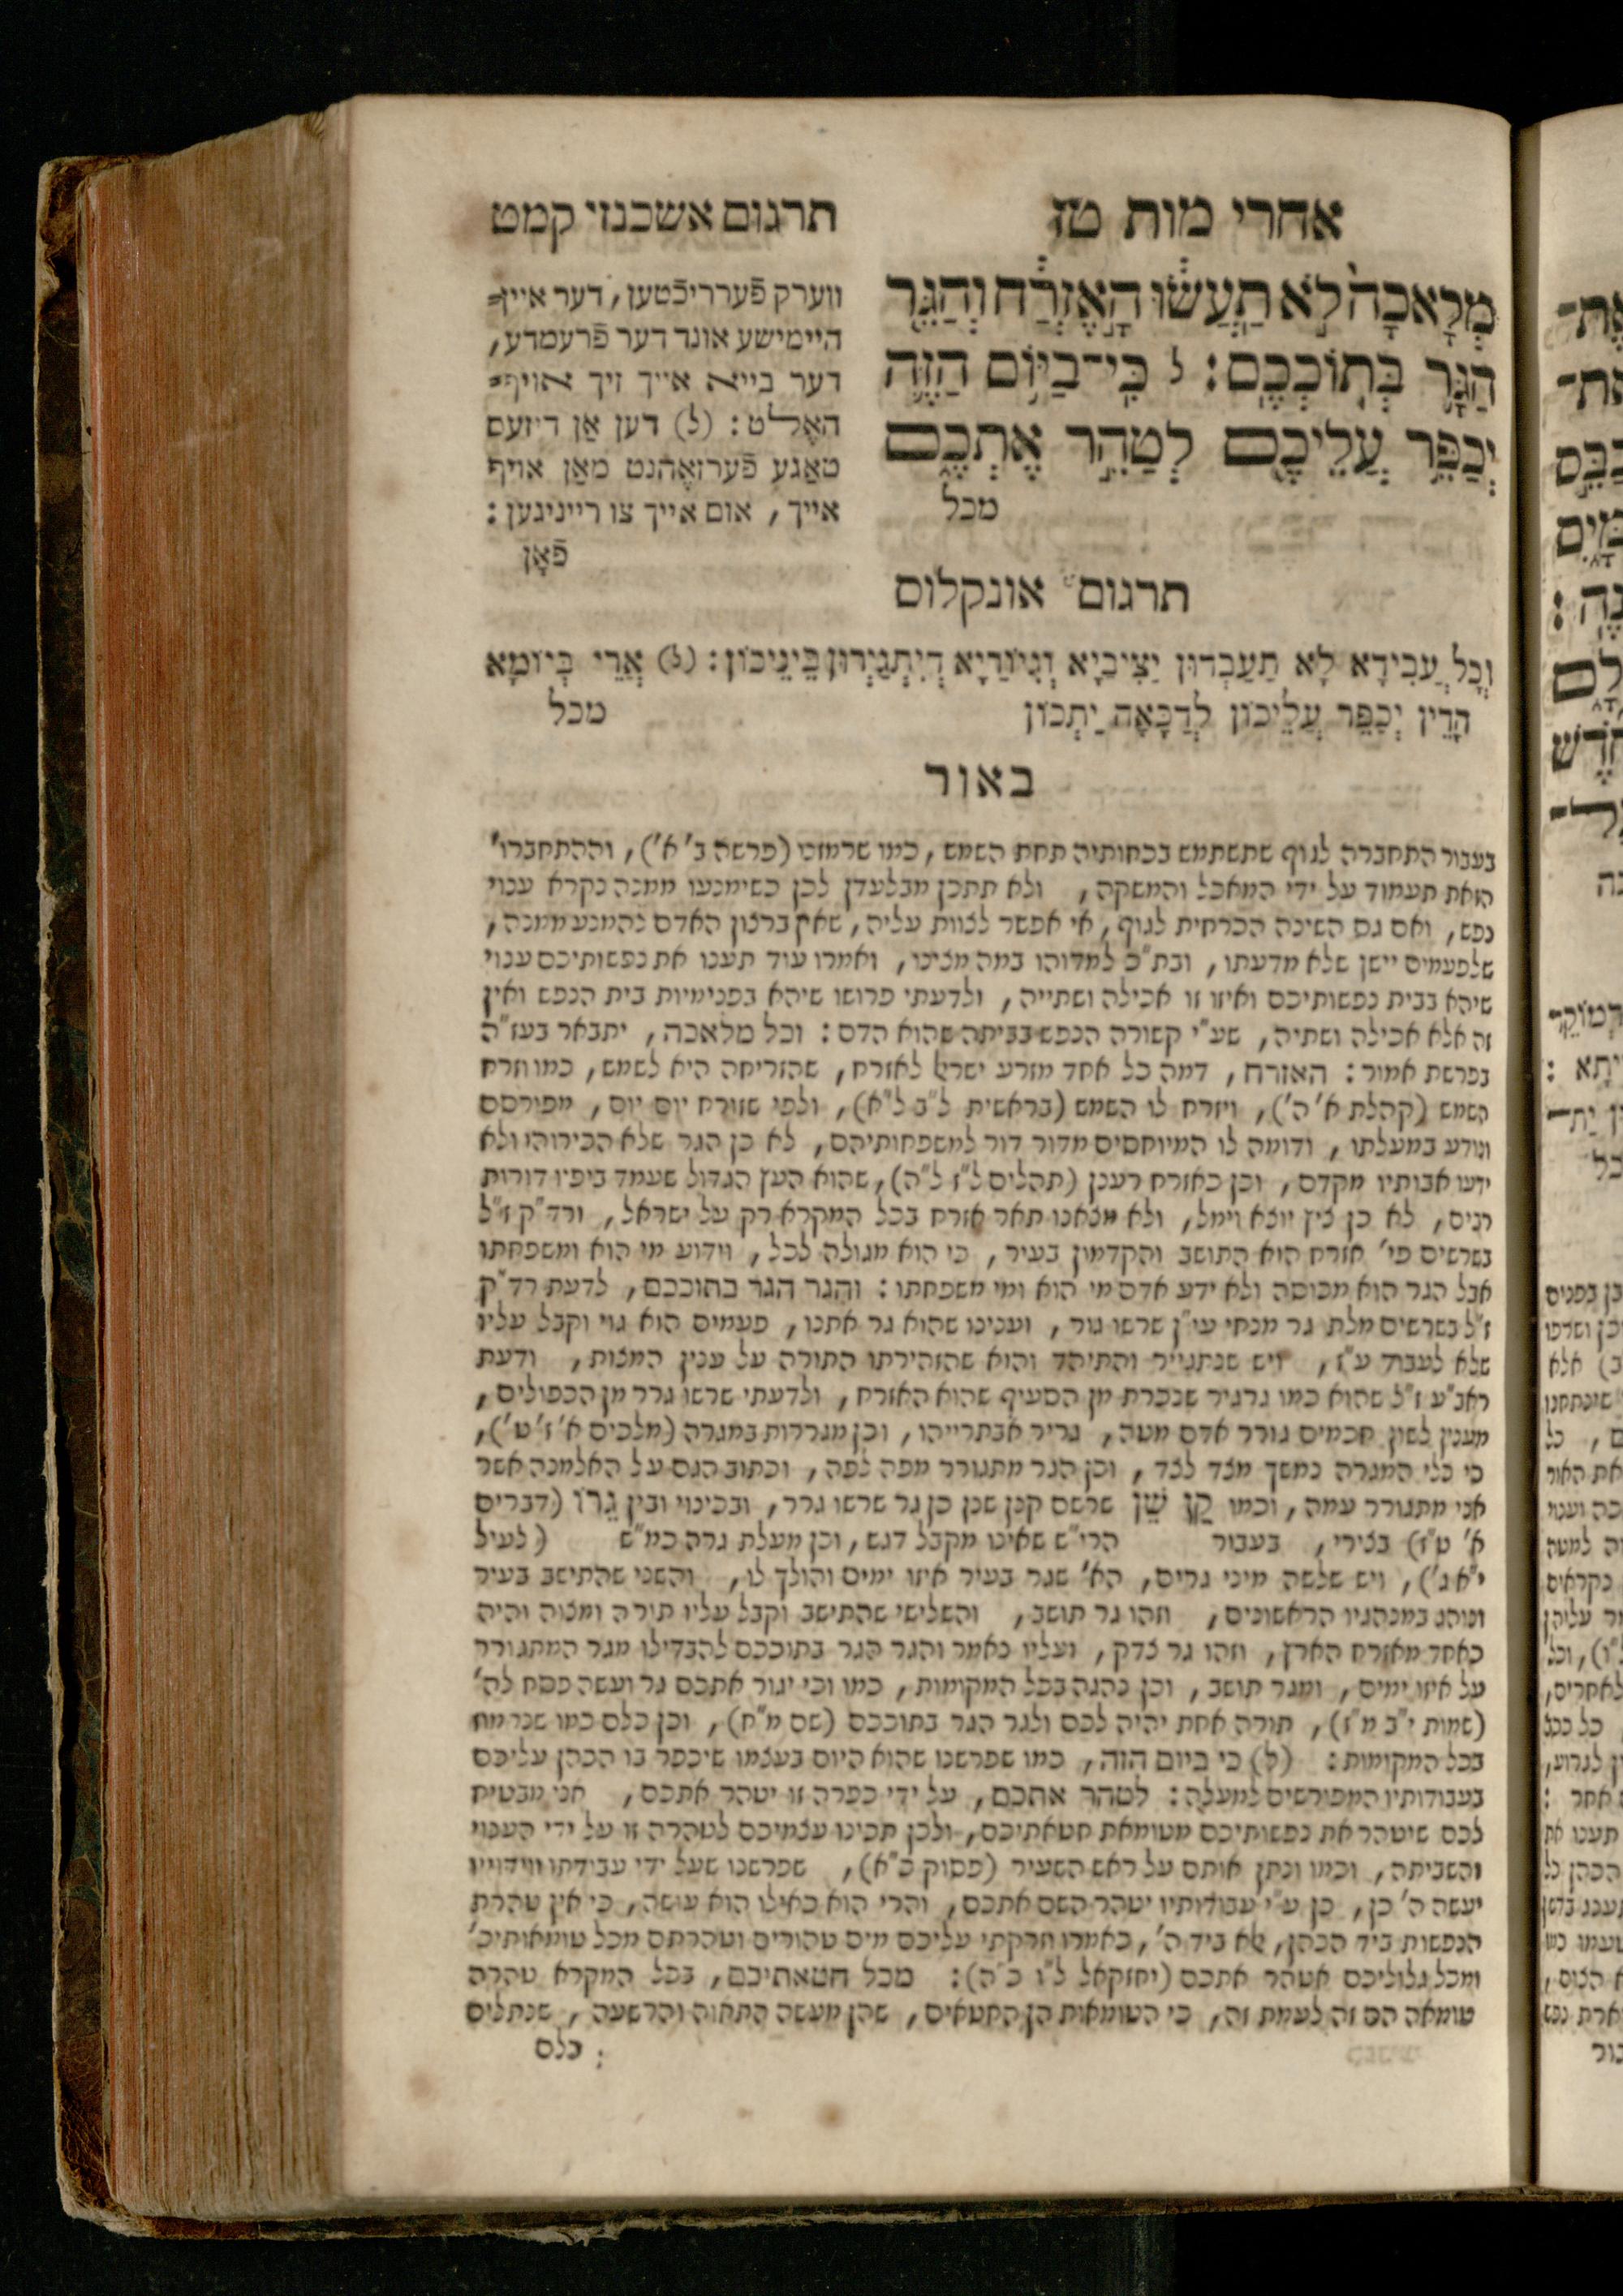 אחרי מות טז
תרגום אשכנזי קמט
מְלָאכָה֙ לֹ֣א תַעֲשׂ֔וּ הָֽאֶזְרָ֔ח וְהַגֵּ֖ר
הַגָּ֥ר בְּתוֹכְכֶֽם׃ ל כִּֽי־בַיּ֥וֹם הַזֶּ֛ה
יְכַפֵּ֥ר עֲלֵיכֶ֖ם לְטַהֵ֣ר אֶתְכֶ֑ם
מכל
ווערק פֿערריכֿטען, דער איין=
היימישע אונד דער פֿרעמדע,
דער בייא אייך זיך אויף=
האָלט: (ל) דען אַן דיזעם
טאַגע פֿערזאָהנט מאַן אויף
אייך, אום אייך צו רייניגען:
פֿאָן
תרגום אונקלוס
וְכָל עֲבִידָא לָא תַעַבְדוּן יַצִּיבַיָא וְגִיוֹרַיָא דְיִתְגַיְרוּן בֵּינֵיכוֹן: (ל) אֲרֵי בְּיוֹמָא
הָדֵין יְכַפֵּר עֲלֵיכוֹן לְדַכָּאָה יַתְכוֹן מכל
באור
בעבור התחברה לגוף שתשתמש בכחותיה תחת השמש, כמו שרמזנו (פרשה ב' א'), וההתחברו'
הזאת תעמוד על ידי המאכל והמשקה, ולא תתכן מבלעדן לכן כשימנעו ממנה נקרא ענוי
נפש, ואם גם השינה הכרחית לגוף, אי אפשר לצוות עליה, שאין ברצון האדם להמנע ממנה,
שלפעמים יישן שלא מדעתו, ובת"כ למדוהו במה מצינו, ואמרו עוד תענו את נפשותיכם ענוי
שיהא בבית נפשותיכם ואיזו זו אכילה ושתייה, ולדעתי פרושו שיהא בפנימיות בית הנפש ואין
זה אלא אכילה ושתיה, שע"י קשורה הנפש בביתה שהוא הדם: וכל מלאכה, יתבאר בעז"ה
בפרשת אמור: האזרח, דמה כל אחד מזרע ישראל לאזרח, שהזריחה היא לשמש, כמו וזרח
השמש (קהלת א' ה'), ויזרח לו השמש (בראשית ל"ב ל"א), ולפי שזורח יום יום, מפורסם
ונודע במעלתו, ודומה לו המיוחסים מדור דור למשפחותיהם, לא כן הגר שלא הכירוהו ולא
ידעו אבותיו מקדם, וכן כאזרח רענן (תהלים ל"ז ל"ה), שהוא העץ הגדול שעמד ביפיו דורות
רבים, לא כן ציץ יוצא וימל, ולא מצאנו תאר אזרח בכל המקרא רק על ישראל, ורד"ק ז"ל
בשרשים פי' אזרח הוא התושב והקדמון בעיר, כי הוא מגולה לכל, וידוע מי הוא ומשפחתו
אבל הגר הוא מכוסה ולא ידע אדם מי הוא ומי משפחתו: והגר הגר בתוככם, לדעת רד"ק
ז"ל בשרשים מלת גר מנחי עי"ן שרשו גור, וענינו שהוא גר אתנו, פעמים הוא גוי וקבל עליו
שלא לעבוד ע"ז, ויש שנתגייר והתיהד והוא שהזהירתו התורה על ענין המצות, ודעת
ראב"ע ז"ל שהוא כמו גרגיר שנכרת מן הסעיף שהוא האזרח, ולדעתי שרשו גרר מן הכפולים,
מענין לשון חכמים גורר אדם מטה, גריר אבתרייהו, וכן מגררות במגרה (מלכים א' ז' ט'),
כי כלי המגרה נמשך מצד לצד, וכן הגר מתגורר מפה לפה, וכתוב הגם על האלמנה אשר
אני מתגורר עמה, וכמו קֵן שֵׁן שרשם קנן שנן כן גר שרשו גרר, ובכינוי ובין גֵרוֹ (דברים
א' ט"ז) בצירי, בעבור הרי"ש שאינו מקבל דגש, וכן מעלת גרה כמ"ש (לעיל
י"א ג'), ויש שלשה מיני גרים, הא' שגר בעיר איזו ימים והולך לו, והשני שהתישב בעיר
ונוהג במנהגיו הראשונים, וזהו גר תושב, והשלישי שהתישב וקבל עליו תורה ומצוה והיה
כאחד מאזרח הארץ, וזהו גר צדק, ועליו נאמר והגר הגר בתוככם להבדילו מגר המתגורר
על איזו ימים, ומגר תושב, וכן נהגה בכל המקומות, כמו וכי יגור אתכם גר ועשה פסח לה'
(שמות י"ב מ"ז), תורה אחת יהיה לכם ולגר הגר בתוככם (שם מ"ח), וכן כלם כמו שנרמוז
בכל המקומות: (ל) כי ביום הזה, כמו שפרשנו שהוא היום בעצמו שיכפר בו הכהן עליכם
בעבודותיו המפורשים למעלה: לטהר אתכם, על ידי כפרה זו יטהר אתכם, אני מבטיח
לכם שיטהר את נפשותיכם מטומאת חטאתיכם, ולכן תכינו עצמיכם לטהרה זו על ידי הענוי
והשביתה, וכמו ונתן אותם על ראש השעיר (פסוק כ"א), שפרשנו שעל ידי עבודתו ווידוייו
יעשה ה' כן, כן ע"י עבודותיו יטהר השם אתכם, והרי הוא כאילו הוא עושה, כי אין טהרת
הנפשות ביד הכהן, אלא ביד ה', כאמרו וזרקתי עליכם מים טהורים וטהרתם מכל טומאותיכ'
ומכל גלוליכם אטהר אתכם (יחזקאל ל"ו כ"ה): מכל חטאתיכם, בכל המקרא טהרה
טומאה הם זה לעמת זה, כי הטומאות הן החטאים, שהן מעשה התאוה והרשעה, שנתלים
כלם